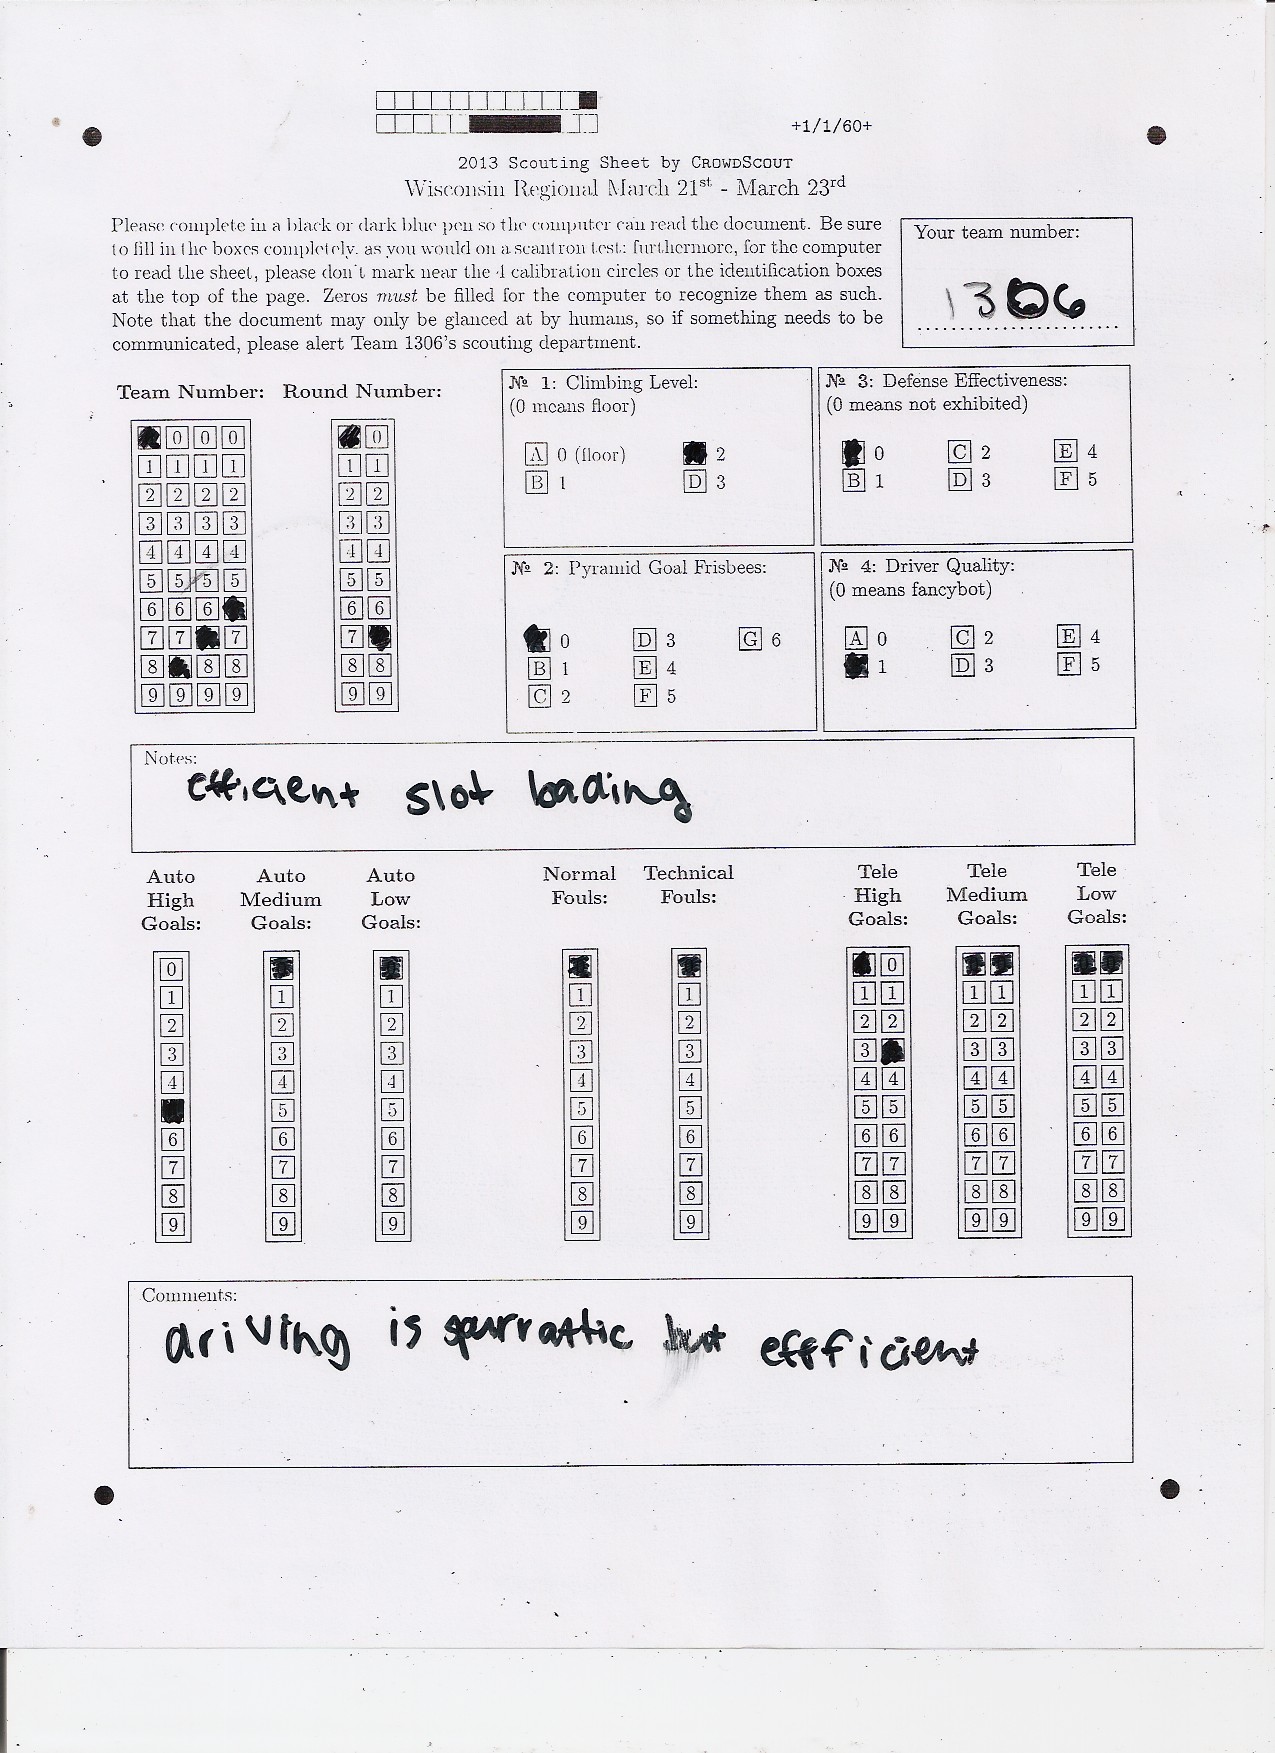 +1/1/60+
2013 Scouting Sheet by CROWDSCOUT
Wisconsin Regional March 21st - March 23rd
Please complete in a black or dark blue pen so the computer can read the document. Be sure
to fill in the boxes completely, as you would on a scantron test; furthermore, for the computer
to read the sheet, please don't mark near the 4 calibration circles or the identification boxes
at the top of the page. Zeros must be filled for the computer to recognize them as such.
Note that the document may only be glanced at by humans, so if something needs to be
communicated, please alert Team 1306's scouting department.
Your team number:
1306
Team Number: Round Number:
0 0 0 0
1 1 1 1 1 1
2 2 2 2 2 2
3 3 3 3 3 3
4 4 4 4 4 4
5 5 5 5 5 5
6 6 6 6 6
7 7 7 7
8 8 8 8 8
9 9 9 9 9 9
№ 1: Climbing Level:
(0 means floor)
A 0 (floor) 2
B 1 D 3
№ 3: Defense Effectiveness:
(0 means not exhibited)
0 C 2 E 4
B 1 D 3 F 5
№ 2: Pyramid Goal Frisbees:
0 D 3 G 6
B 1 E 4
C 2 F 5
№ 4: Driver Quality:
(0 means fancybot)
A 0 C 2 E 4
1 D 3 F 5
Notes:
efficient slot loading
Auto High Goals: Auto Medium Goals: Auto Low Goals: Normal Fouls: Technical Fouls: Tele High Goals: Tele Medium Goals: Tele Low Goals:
0 0
1 1 1 1 1 1 1 1 1 1 1
2 2 2 2 2 2 2 2 2 2 2
3 3 3 3 3 3 3 3 3 3
4 4 4 4 4 4 4 4 4 4 4
5 5 5 5 5 5 5 5 5 5
6 6 6 6 6 6 6 6 6 6 6
7 7 7 7 7 7 7 7 7 7 7
8 8 8 8 8 8 8 8 8 8 8
9 9 9 9 9 9 9 9 9 9 9
Comments:
driving is spurrattic but effficient